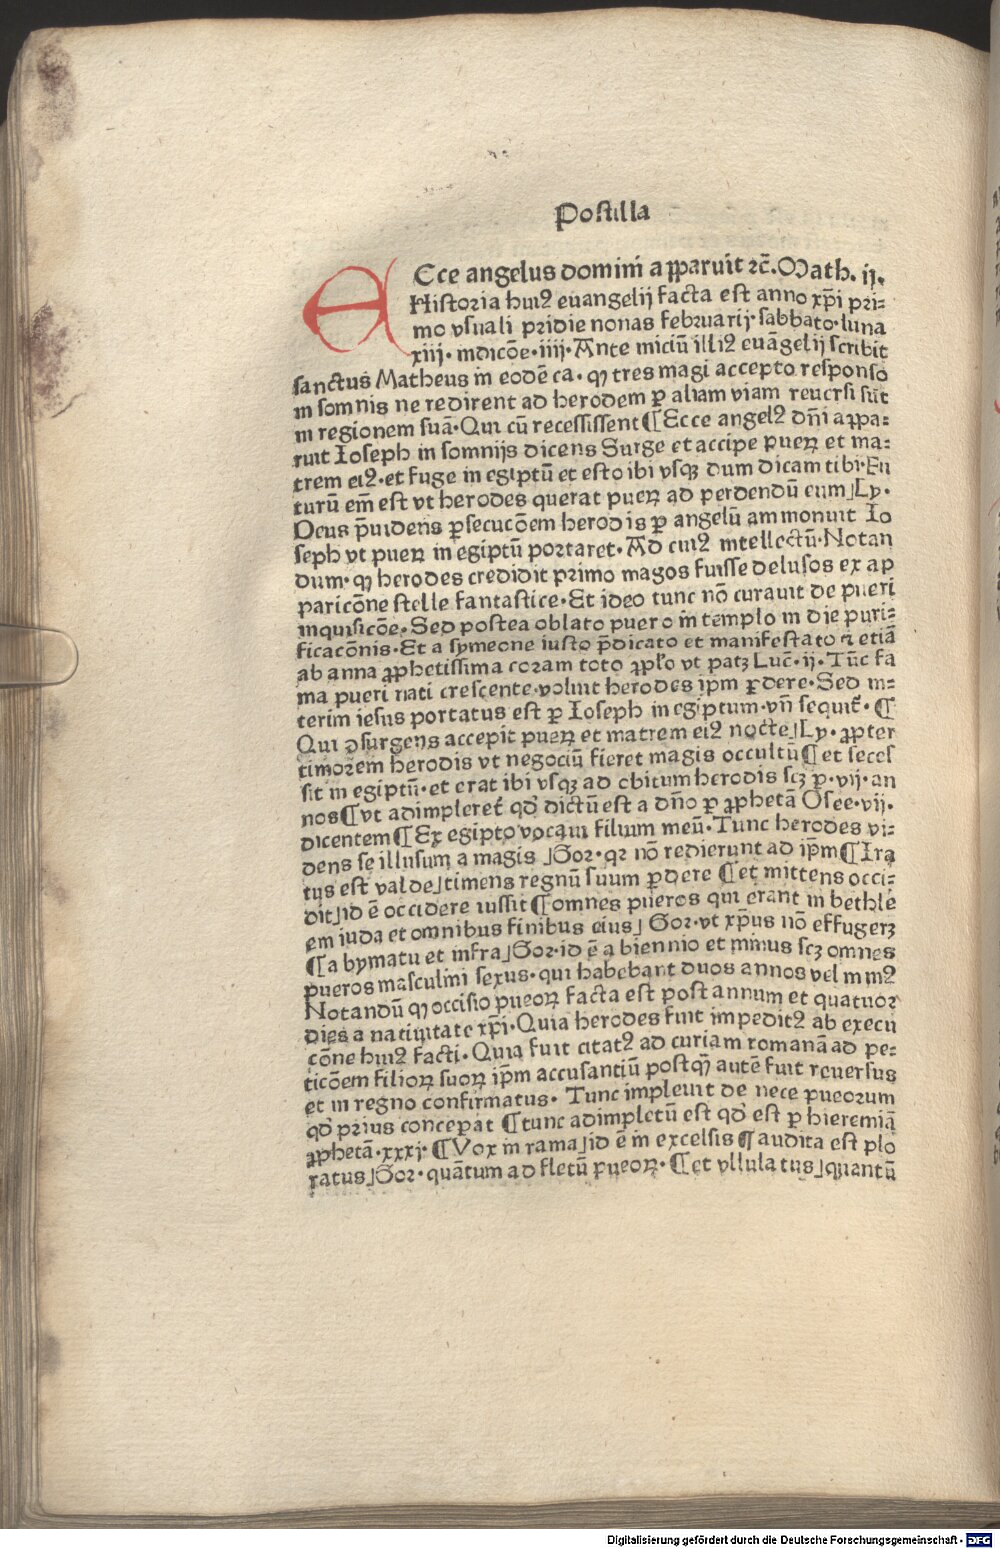 Postilla
ECce angelus domini apparuit ⁊c̄. Math. ij.
Historia hui⁹ euangelij facta est anno xp̄i pri⸗
mo vsuali pridie nonas februarij· sabbato· luna
xiij· indicōe· iiij· Ante iniciū illi⁹ euāgelij scribit
sanctus Matheus in eodē ca· ꝙ tres magi accepto responso
in somnis ne redirent ad herodem ꝑ aliam viam reuersi sūt
in regionem suā· Qui cū recessissent ¶ Ecce angel⁹ dn̄i appa⸗
ruit Ioseph in somnijs dicens Surge et accipe pueꝝ et ma⸗
trem ei⁹· et fuge in egiptū et esto ibi vsqꝫ dum dicam tibi· Fu
turū em̄ est vt herodes querat pueꝝ ad perdendū eum˩ Ly·
Deus p̄uidens ꝑsecucōem herodis ꝑ angelū ammonuit Io
seph vt pueꝝ in egiptū portaret· Ad cui⁹ intellectū· Notan
dum· ꝙ herodes credidit primo magos fuisse delusos ex ap
paricōne stelle fantastice· Et ideo tunc nō curauit de pueri
inquisicōe· Sed postea oblato puero in templo in die puri⸗
ficacōnis· Et a symeone iusto p̄dicato et manifestato ⁊ etiā
ab anna ꝓphetissima coram toto ꝓpl̄o vt patꝫ Luc̄· ij· Tūc fa
ma pueri nati crescente· voluit herodes ip̄m ꝑdere· Sed in⸗
terim iesus portatus est ꝑ Ioseph in egiptum· vn̄ sequit᷑· ¶
Qui ꝯsurgens accepit pueꝝ et matrem ei⁹ nocte˩ Ly· ꝓpter
timorem herodis vt negociū fieret magis occultū ¶ et seces
sit in egiptū· et erat ibi vsqꝫ ad obitum herodis scꝫ ꝑ· vij· an
nos ¶ vt adimpleret᷑ qd̄ dictū est a dn̄o ꝑ ꝓphetā Osee· vij·
dicentem ¶ Ex egipto vocaui filium meū· Tunc herodes vi⸗
dens se illusum a magis ˩ Gor· qꝛ nō redierunt ad ip̄m ¶ Ira
tus est valde˩ timens regnū suum ꝑdere ¶ et mittens occi⸗
dit˩ id ē occidere iussit ¶ omnes pueros qui erant in bethle
em iuda et omnibus finibus eius˩ Gor· vt xp̄us nō effugeꝝ
¶ a bymatu et infra˩ Gor· id ē a biennio et minus scꝫ omnes
pueros masculini sexus· qui habebant duos annos vel min⁹
Notandū ꝙ occisio pueoꝝ facta est post annum et quatuor
dies a natiuitate xp̄i· Quia herodes fuit impedit⁹ ab execu
cōne hui⁹ facti· Quia fuit citat⁹ ad curiam romanā ad pe⸗
ticōem filioꝝ suoꝝ ip̄m accusantiū postꝙ̄ autē fuit reuersus
et in regno confirmatus· Tunc impleuit de nece pueorum
qd̄ prius conceperat ¶ tunc adimpletū est qd̄ est ꝑ hieremiā
ꝓphetā· xxxj· ¶ Vox in rama˩ id ē in excelsis ¶ audita est plo
ratus˩ Gor· quātum ad fletū pueoꝝ· ¶ et vllulatus˩ quantū
Digitalisierung gefördert durch die Deutsche Forschungsgemeinschaft - DFG